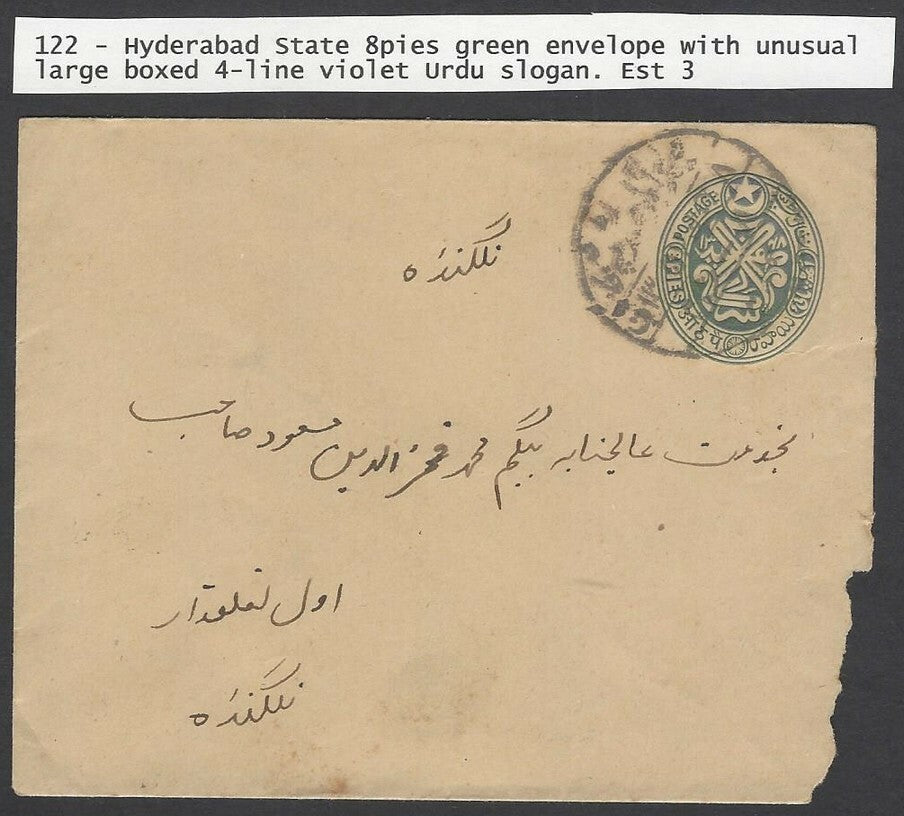 122 - Hyderabad State 8pies green envelope with unusual
large boxed 4-line violet Urdu slogan. Est 3
POSTAGE
8 PIES
نلگنڈہ
بخدمت عالیجنابہ بیگم محمد فخر الدین مسعود صاحب
اول تعلقدار
نلگنڈہ